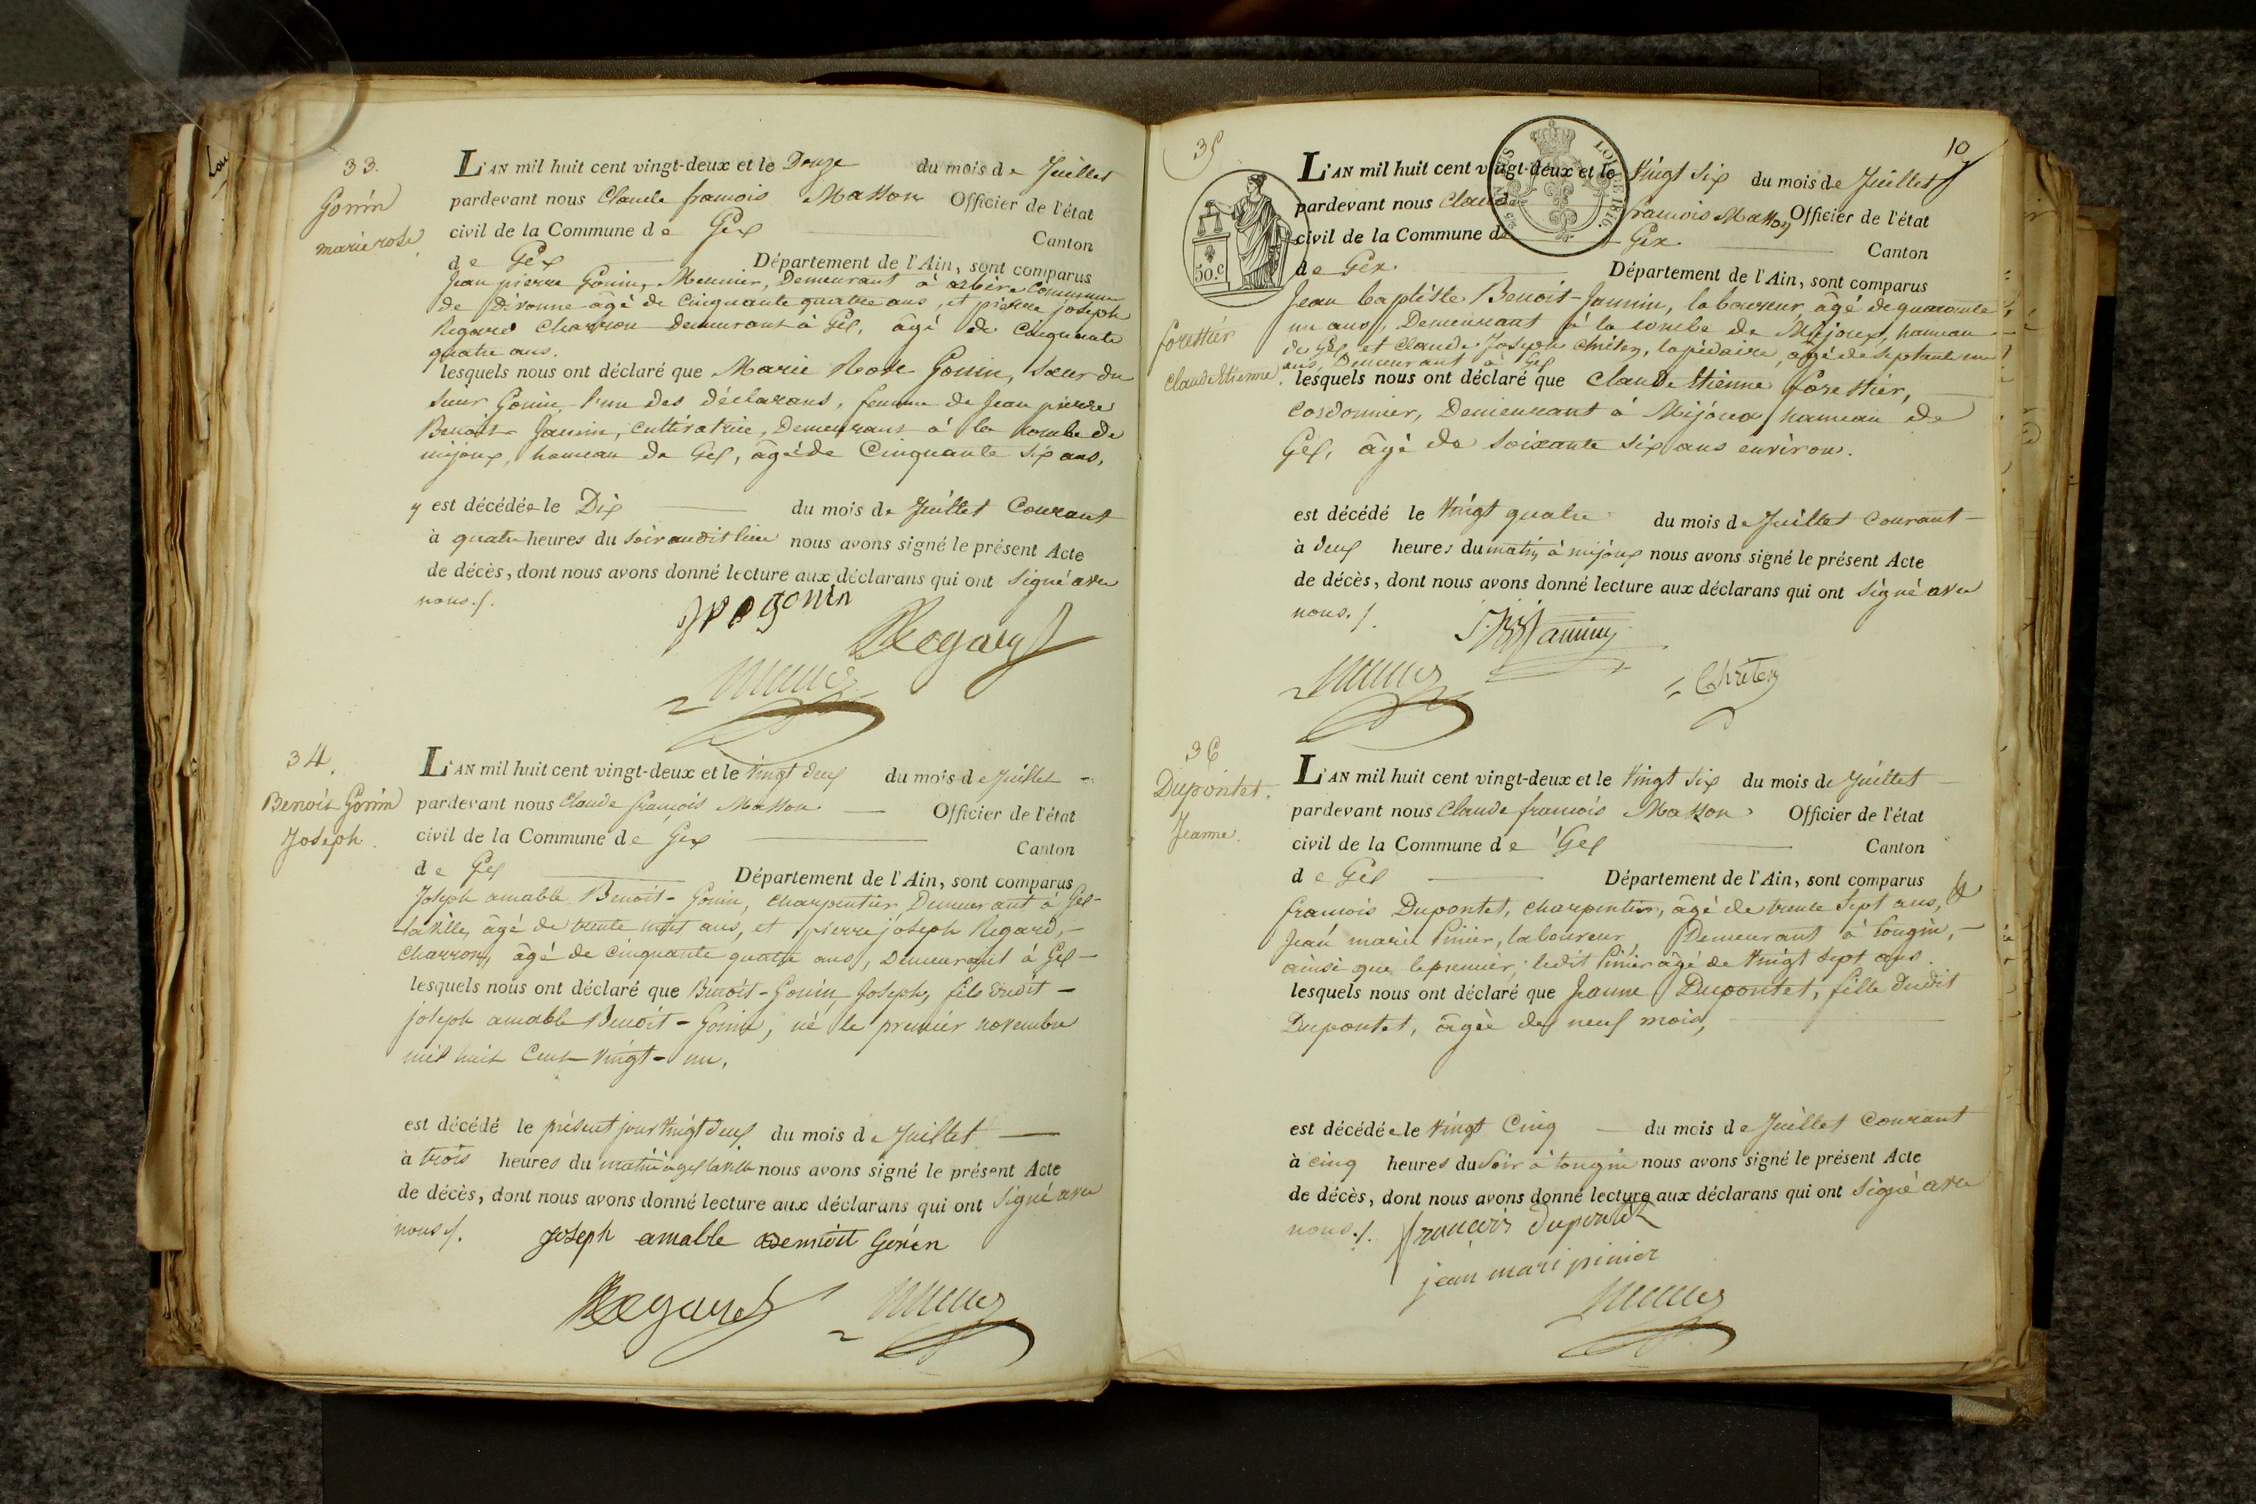 33.
Gonin
marie rose
L'AN mil huit cent vingt-deux et le Douze du mois de Juillet
pardevant nous Claude françois Masson Officier de l'état
civil de la Commune de Gex Canton
de Gex Département de l'Ain, sont comparus
Jean pierre Gonin, Meunier, Demeurant à arbère Commune
de Divonne âgé de Cinquante quatre ans, et pierre joseph
Regard Charron demeurant à Gex, âgé de Cinquante
quatre ans.
lesquels nous ont déclaré que Marie Rose Gonin, sœur du
sieur Gonin, l'un des déclarans, femme de Jean pierre
Benoit-Jannin, cultivatrice, Demeurant à la combe de
mijoux, hameau de Gex, âgée de Cinquante six ans,
y est décédée le Dix du mois de Juillet Courant
à quatre heures du soir audit lieu nous avons signé le présent Acte
de décès, dont nous avons donné lecture aux déclarans qui ont signé avec
nous./.
gonin
Regard
34.
Benoit Gonin
Joseph.
L'AN mil huit cent vingt-deux et le vingt deux du mois de Juillet
pardevant nous Claude françois Masson Officier de l'état
civil de la Commune de Gex Canton
de Gex Département de l'Ain, sont comparus
Joseph amable Benoit-Gonin, charpentier, Demeurant à Gex-
la ville, âgé de trente ans, et pierre joseph Regard,
charron, âgé de cinquante quatre ans, Demeurant à Gex
lesquels nous ont déclaré que Benoit-Gonin Joseph, fils dudit
joseph amable Benoit-Gonin, né le premier novembre
mil huit Cent vingt-un.
est décédé le présent jour vingt deux du mois de Juillet
à trois heures du matin à gex la ville nous avons signé le présent Acte
de décès, dont nous avons donné lecture aux déclarans qui ont signé avec
nous./.
joseph amable Bennoit Gonin
Regard
35
10
50.c
LOI DE 1816.
forestier
Claude Etienne.
L'AN mil huit cent vingt-deux et le vingt six du mois de Juillet
pardevant nous Claude françois Masson Officier de l'état
civil de la Commune de Gex Canton
de Gex Département de l'Ain, sont comparus
Jean baptiste Benoit-Jannin, laboureur, âgé de quarante
un ans, Demeurant à la combe de Mijoux, hameau
de Gex et Claude Joseph chrêten, lapidaire, âgé de septante un
ans, Demeurant à Gex
lesquels nous ont déclaré que Claude Etienne forestier,
Cordonnier, Demeurant à Mijoux hameau de
Gex, âgé de soixante six ans environ.
est décédé le vingt quatre du mois de Juillet courant
à deux heures du matin à mijoux nous avons signé le présent Acte
de décès, dont nous avons donné lecture aux déclarans qui ont signé avec
nous./.
Jannin
Chrêten
36
Dupontet.
Jeanne.
L'AN mil huit cent vingt-deux et le vingt six du mois de Juillet
pardevant nous Claude françois Masson Officier de l'état
civil de la Commune de Gex Canton
de Gex Département de l'Ain, sont comparus
françois Dupontet, charpentier, âgé de trente sept ans, &
Jean marie Pinier, laboureur, Demeurant à tougin,
ainsi que le premier, ledit Pinier âgé de vingt sept ans.
lesquels nous ont déclaré que Jeanne Dupontet, fille dudit
Dupontet, âgée de neuf mois,
est décédée le vingt Cinq du mois de Juillet Courant
à cinq heures du soir à tougin nous avons signé le présent Acte
de décès, dont nous avons donné lecture aux déclarans qui ont signé avec
nous./.
francois dupontet
jean mari pinier